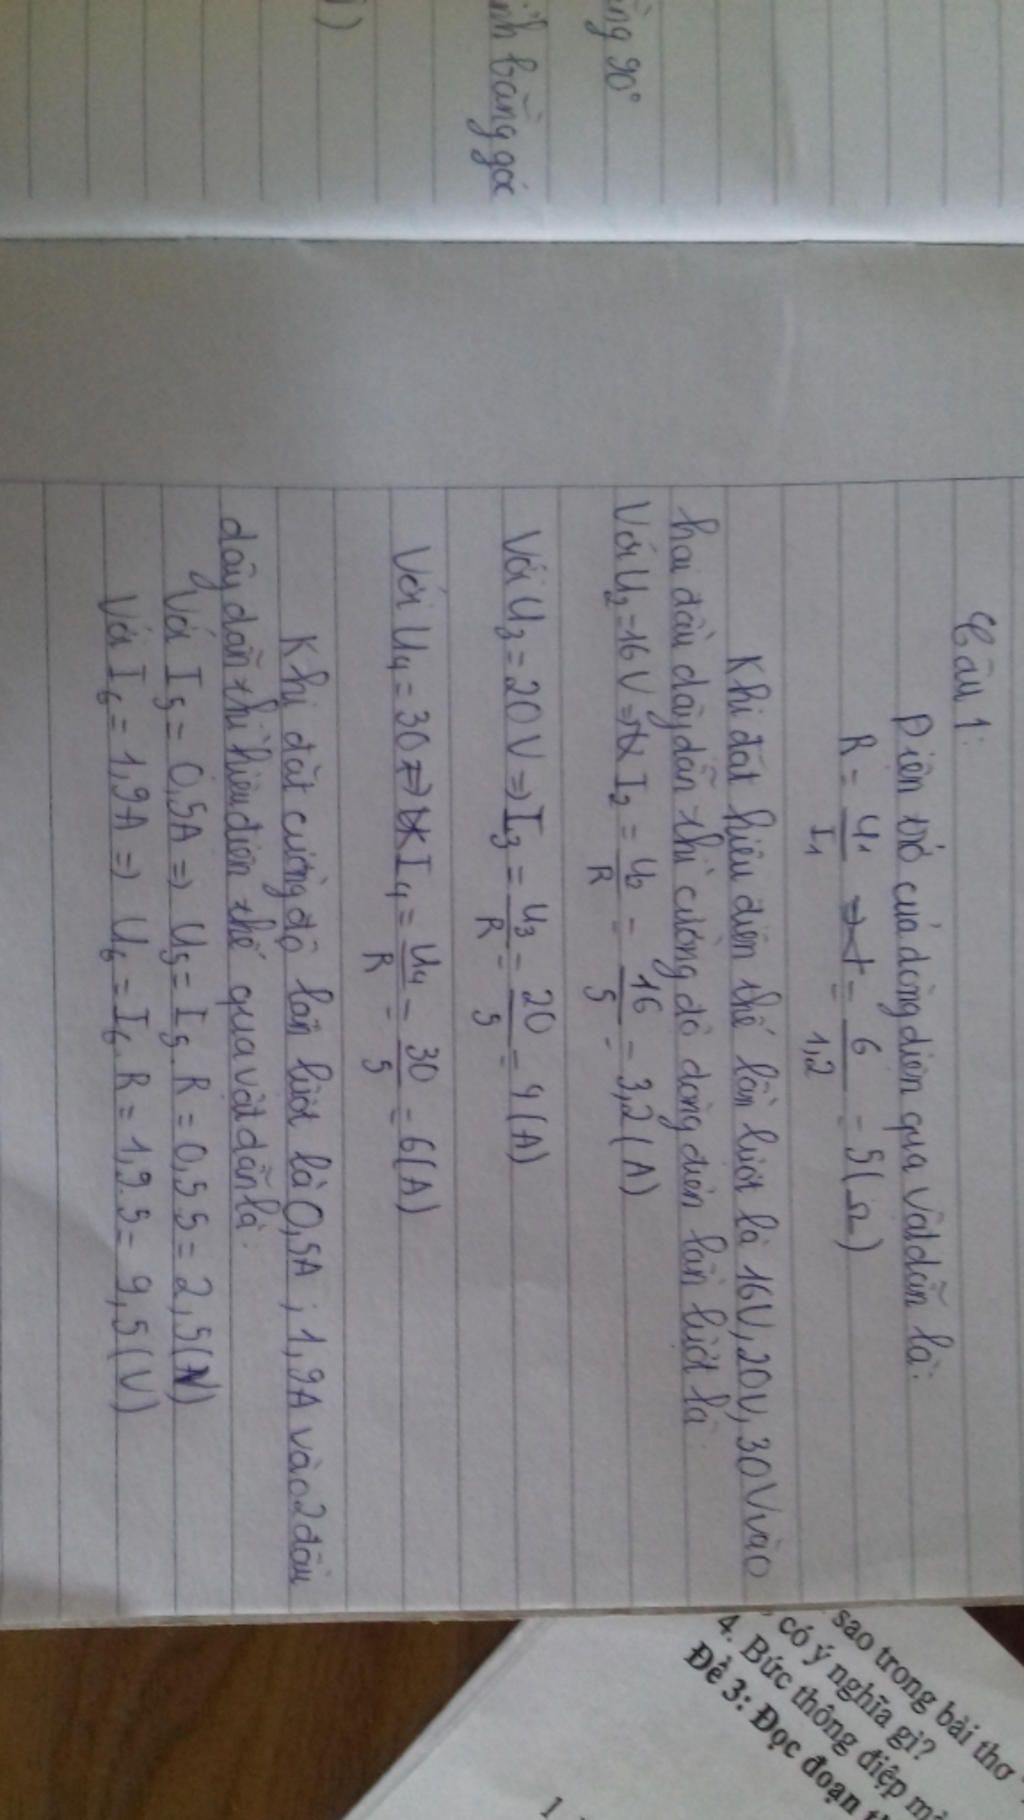 ằng 90°
ình bằng góc
)
Câu 1:
Điện trở của dòng điện qua vật dẫn là:
R = U₁/I₁ = 6/1,2 = 5(Ω)
Khi đặt hiệu điện thế lần lượt là 16V, 20V, 30V vào
hai đầu dây dẫn thì cường độ dòng điện lần lượt là:
Với U₂ = 16V ⇒ I₂ = U₂/R = 16/5 = 3,2(A)
Với U₃ = 20V ⇒ I₃ = U₃/R = 20/5 = 4(A)
Với U₄ = 30 ⇒ I₄ = U₄/R = 30/5 = 6(A)
Khi đặt cường độ lần lượt là 0,5A ; 1,9A vào 2 đầu
dây dẫn thì hiệu điện thế qua vật dẫn là:
Với I₅ = 0,5A ⇒ U₅ = I₅.R = 0,5.5 = 2,5(V)
Với I₆ = 1,9A ⇒ U₆ = I₆.R = 1,9.5 = 9,5(V)
sao trong bài thơ
có ý nghĩa gì?
4. Bức thông điệp
Đề 3: Đọc đoạn
1